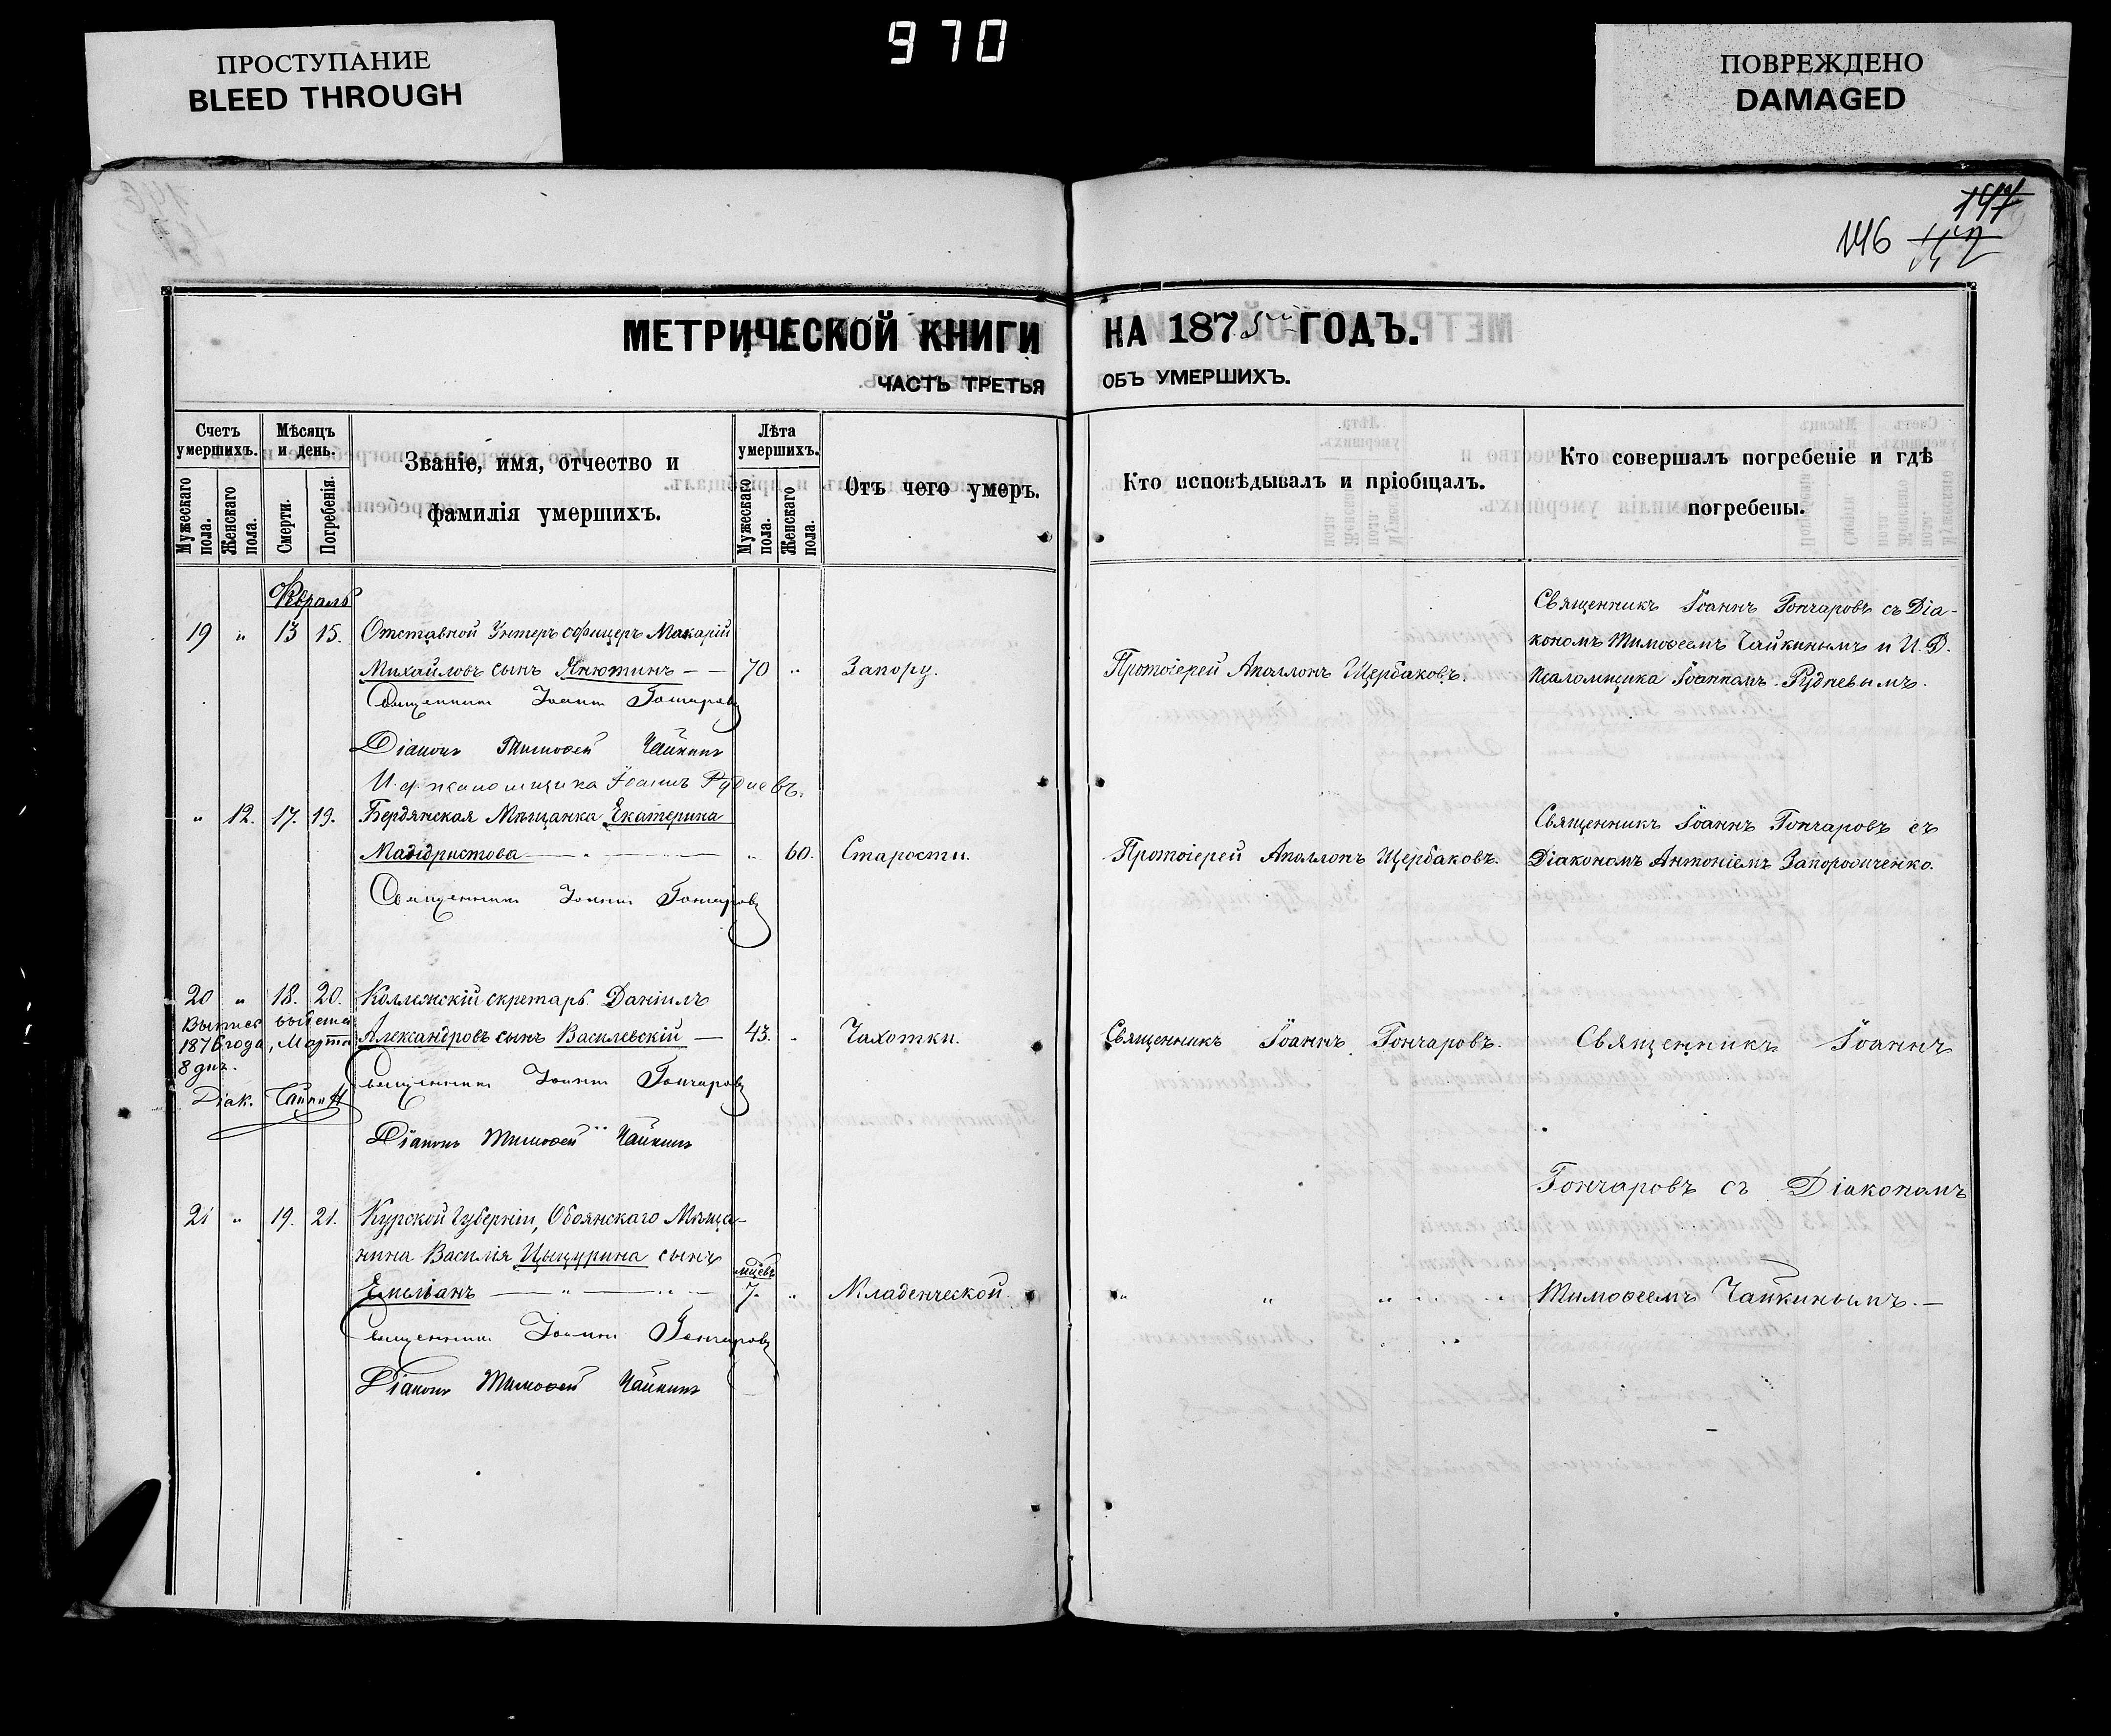 ПРОСТУПАНИЕ
BLEED THROUGH
970
ПОВРЕЖДЕНО
DAMAGED
147
146
МЕТРИЧЕСКОЙ КНИГИ НА 1875 ГОДЪ.
ЧАСТЬ ТРЕТЬЯ ОБЪ УМЕРШИХЪ.
Счетъ умершихъ.
Мужескаго пола.
Женскаго пола.
Мѣсяцъ и день.
Смерти.
Погребенія.
Званіе, имя, отчество и
фамилія умершихъ.
Лѣта умершихъ.
Мужескаго пола.
Женскаго пола.
Отъ чего умеръ.
Кто исповѣдывалъ и пріобщалъ.
Кто совершалъ погребеніе и гдѣ
погребены.
Февраль
19 " 13 15. Отставной Унтеръ офицеръ Макарій
Михайловъ сынъ Янютинъ — — 70 " Запору. Протоіерей Аполлонъ Щербаковъ.
Священникъ Іоаннъ Гончаровъ съ Діа-
кономъ Тимоѳеемъ Чайкинымъ и И. Д.
Псаломщика Іоанномъ Рудневымъ.
Священникъ Іоаннъ Гончаровъ
Діаконъ Тимоѳей Чайкинъ
И. д. псаломщика Іоаннъ Рудневъ.
" 12. 17. 19. Бердянская Мѣщанка Екатерина
— " — " 60. Старости. Протоіерей Аполлонъ Щербаковъ.
Священникъ Іоаннъ Гончаровъ съ
Діакономъ Антоніемъ Запорожченко.
Священникъ Іоаннъ Гончаровъ
20 " 18. 20. Коллежскій скретарь Даніилъ
Александровъ сынъ Василевскій — 43. " Чахотки. Священникъ Іоаннъ Гончаровъ. Священникъ Іоаннъ
1876 года, Марта
8 дня.
Діак. Чайкин
Священникъ Іоаннъ Гончаровъ
Діаконъ Тимоѳей Чайкинъ
Гончаровъ съ Діакономъ
21 " 19. 21. Курской Губерніи, Обоянскаго Мѣща-
нина Василія Цыцурина сынъ
Емеліанъ — " — " — мцевъ 7. " Младенческой " " " Тимоѳеемъ Чайкинымъ. —
Священникъ Іоаннъ Гончаровъ
Діаконъ Тимоѳей Чайкинъ